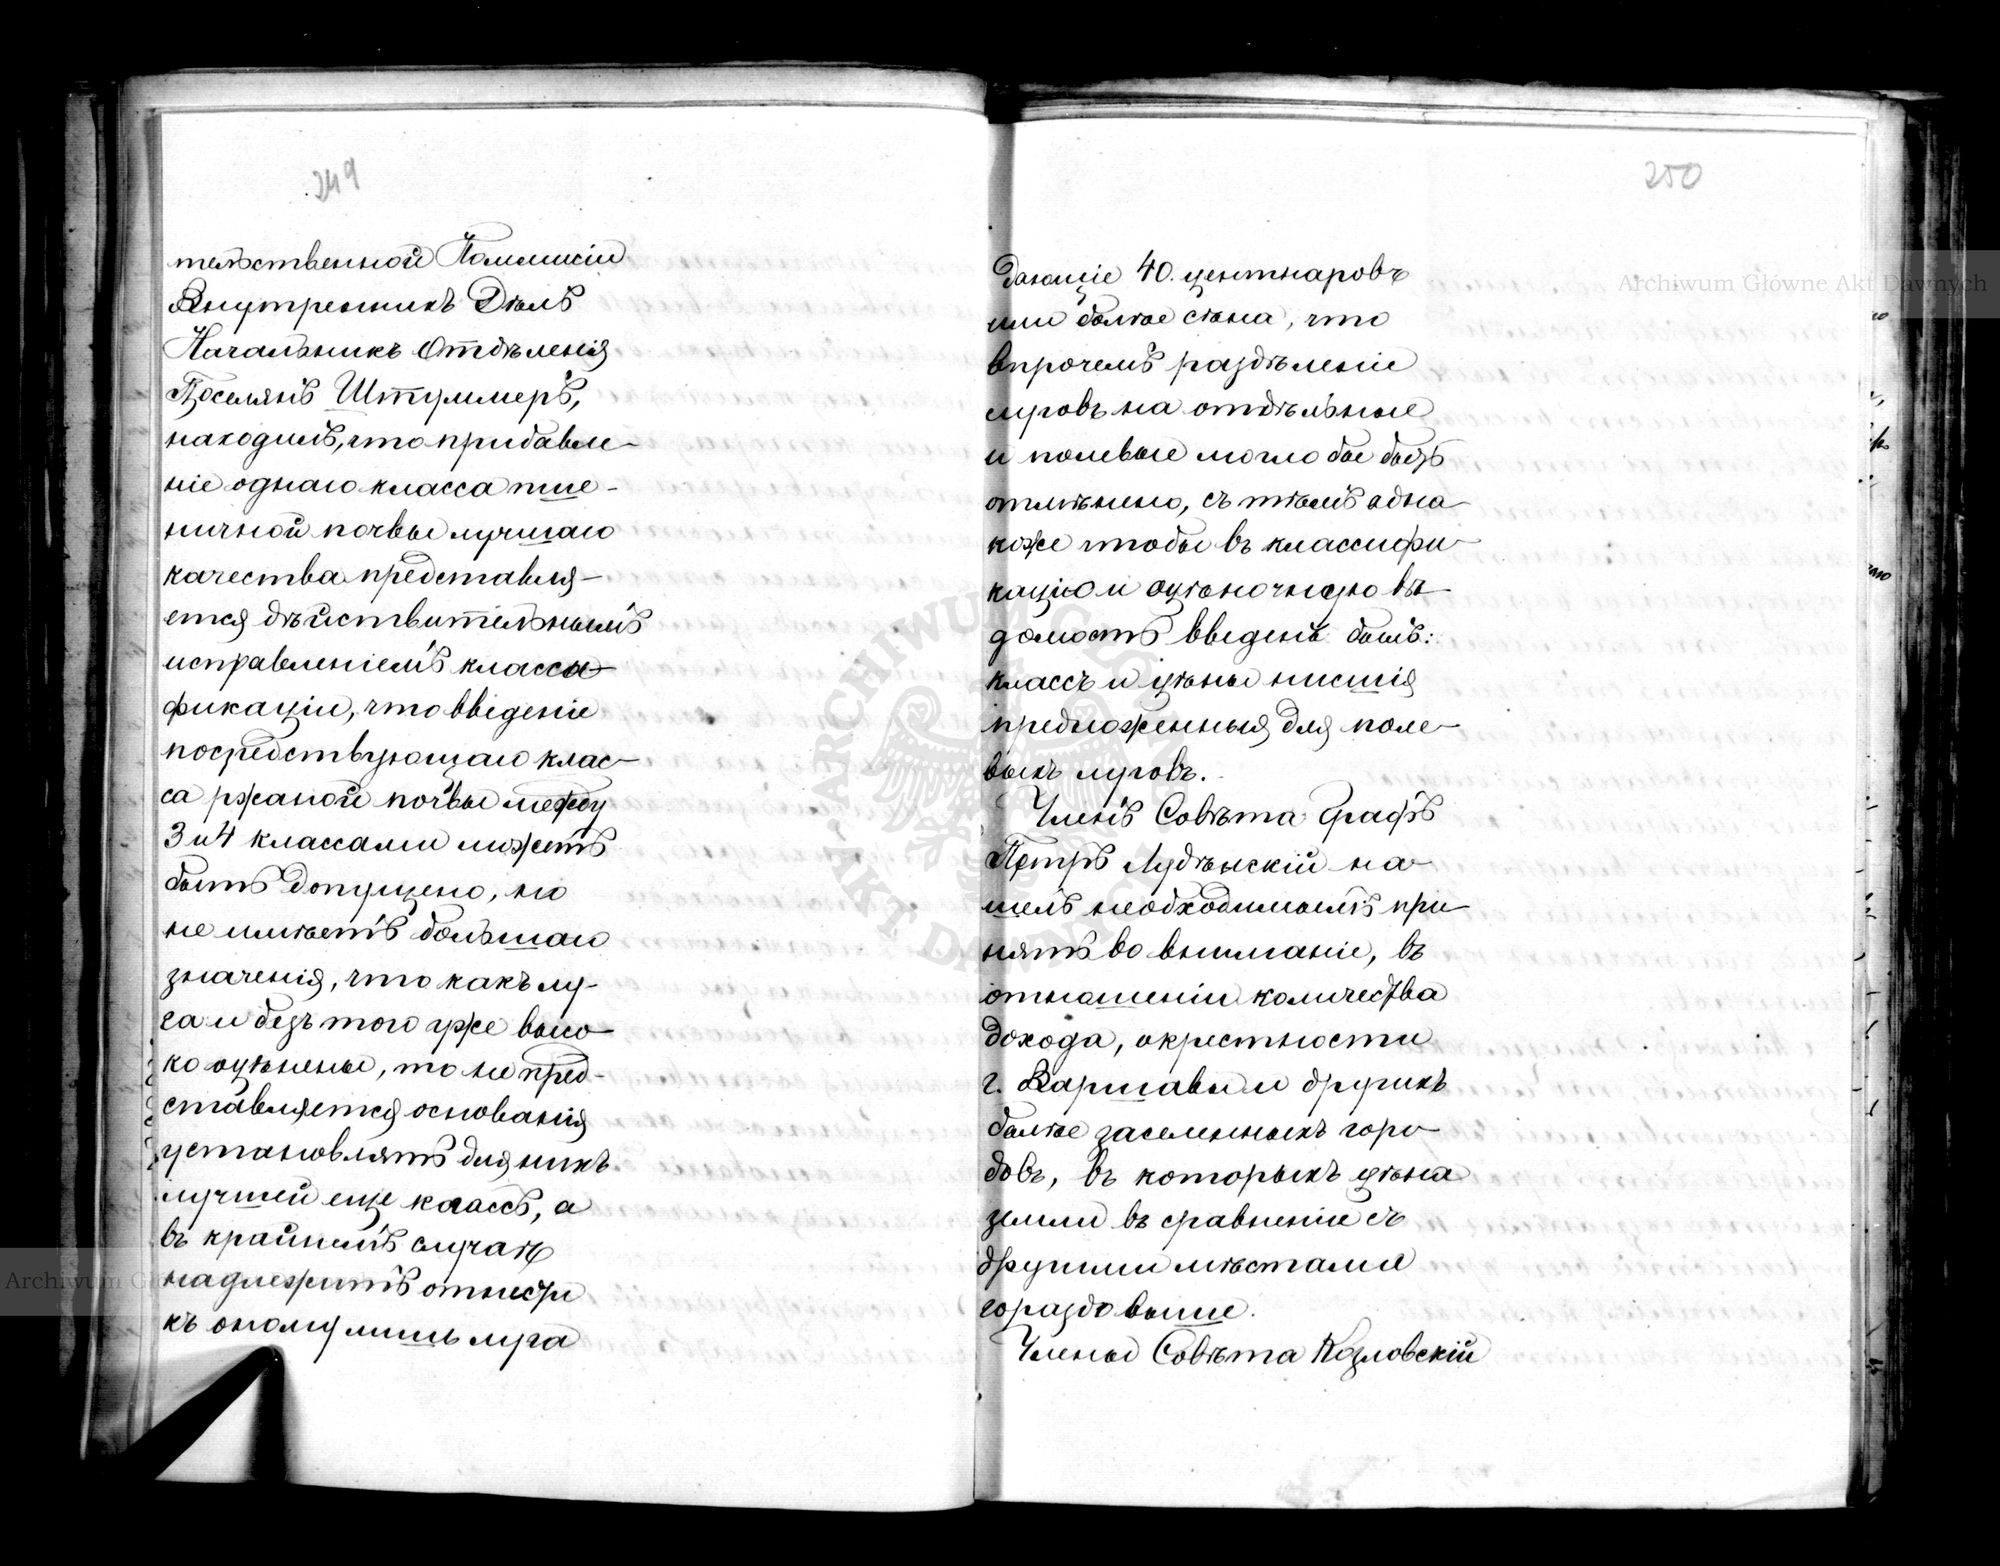 249
тельственной Коммисіи
Внутреннихъ Дѣлъ
Начальникъ Отдѣленія
Поселянъ Штуммеръ,
находилъ, что прибавле-
ніе однаго класса пше-
ничной почвы лучшаго
качества представля-
ется дѣйствительнымъ
исправленіемъ класси-
фикаціи, что введеніе
посредствующаго клас-
са ржаной почвы между
3 и 4 классами можетъ
быть допущено, но
не имѣетъ большаго
значенія, что какъ лу-
га и безъ того уже высо-
ко оцѣнены, то не пред-
ставляется основанія
установлять для нихъ
лучшей еще классъ, а
въ крайнемъ случаѣ
надлежитъ отнести
къ оному лишь луга
250
дающіе 40. центнаровъ
или болѣе сѣна, что
впрочемъ раздѣленіе
луговъ на отдѣльные
и полевые могло бы быть
отмѣнено, съ тѣмъ одна-
коже чтобы въ классифи-
кацію и оцѣночную вѣ-
домость введенъ былъ:
классъ и цѣны нисшія
предложенныя для поле-
выхъ луговъ.
Членъ Совѣта Графъ
Петръ Лубѣнскій на-
шелъ необходимымъ при-
нять во вниманіе, въ
отношеніи количества
дохода, окрестности
г. Варшавы и другихъ
болѣе заселенныхъ горо-
довъ, въ которыхъ цѣна
земли въ сравненіе съ
другими мѣстами
гораздо выше.
Члены Совѣта Козловскій
Archiwum Główne Akt Dawnych
ARCHIWUM GŁÓWNE AKT DAWNYCH